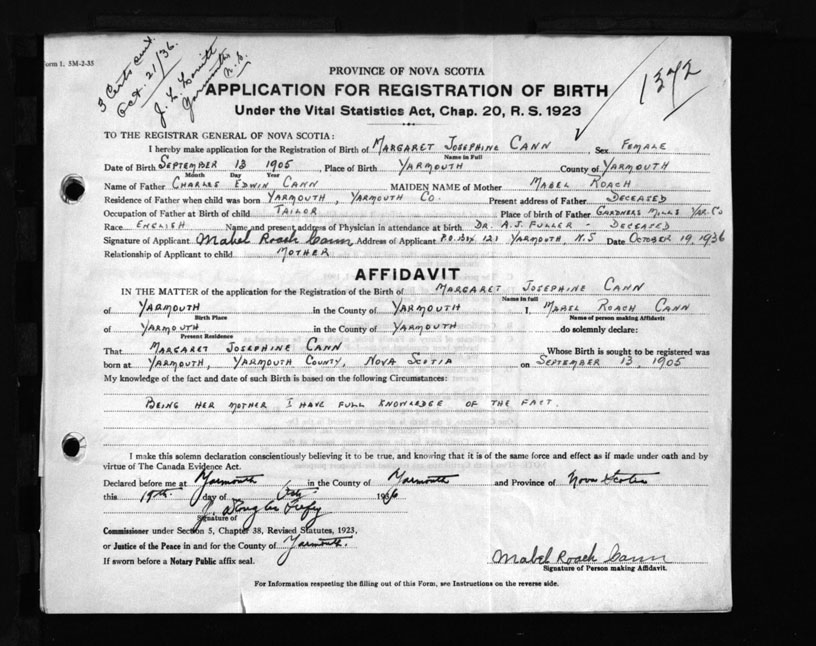 Form 1. 5M-2-35
3 Certs
Oct. 21/36.
J. L. Lovitt
Yarmouth
N.S.
1372
PROVINCE OF NOVA SCOTIA
APPLICATION FOR REGISTRATION OF BIRTH
Under the Vital Statistics Act, Chap. 20, R. S. 1923
TO THE REGISTRAR GENERAL OF NOVA SCOTIA:
I hereby make application for the Registration of Birth of MARGARET JOSEPHINE CANN, Sex FEMALE
Name in Full
Date of Birth SEPTEMBER 13 1905, Place of Birth YARMOUTH County of YARMOUTH
Month Day Year
Name of Father CHARLES EDWIN CANN MAIDEN NAME of Mother MABEL ROACH
Residence of Father when child was born YARMOUTH, YARMOUTH CO. Present address of Father DECEASED
Occupation of Father at Birth of child TAILOR Place of birth of Father GARDNERS MILLS YAR. CO
Race ENGLISH Name and present address of Physician in attendance at birth DR. A.J. FULLER - DECEASED
Signature of Applicant Mabel Roach Cann Address of Applicant P.O. BOX 121 YARMOUTH, N.S Date OCTOBER 19, 1936
Relationship of Applicant to child MOTHER
AFFIDAVIT
IN THE MATTER of the application for the Registration of the Birth of MARGARET JOSEPHINE CANN
Name in full
of YARMOUTH in the County of YARMOUTH I, MABEL ROACH CANN
Birth Place Name of person making Affidavit
of YARMOUTH in the County of YARMOUTH do solemnly declare:
Present Residence
That MARGARET JOSEPHINE CANN Whose Birth is sought to be registered was
born at YARMOUTH, YARMOUTH COUNTY, NOVA SCOTIA on SEPTEMBER 13, 1905
My knowledge of the fact and date of such Birth is based on the following Circumstances:
BEING HER MOTHER I HAVE FULL KNOWLEDGE OF THE FACT.
I make this solemn declaration conscientiously believing it to be true, and knowing that it is of the same force and effect as if made under oath and by
virtue of The Canada Evidence Act.
Declared before me at Yarmouth in the County of Yarmouth and Province of Nova Scotia
this 19th day of Oct. 1936
J. Douglas
Signature of
Commissioner under Section 5, Chapter 38, Revised Statutes, 1923,
or Justice of the Peace in and for the County of Yarmouth.
If sworn before a Notary Public affix seal.
Mabel Roach Cann
Signature of Person making Affidavit.
For Information respecting the filling out of this Form, see Instructions on the reverse side.